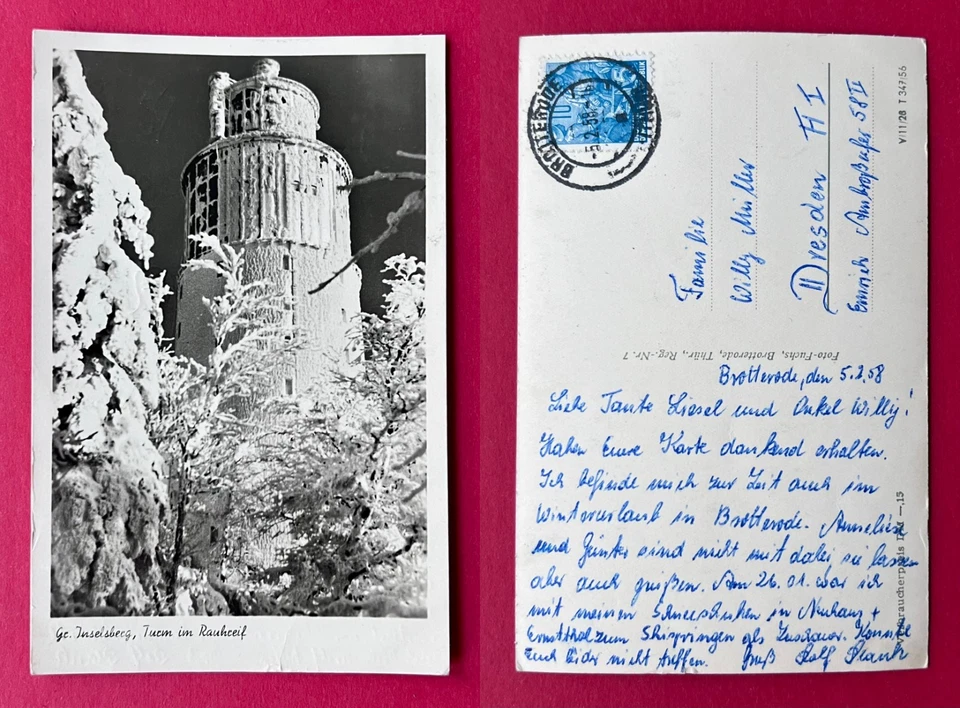 Gr. Inselsberg, Turm im Rauhreif
BROTTERODE
-5.2.58
10
Familie
Willy Müller
Dresden A I
Emrich Ambroßufer 58 II
V 11/28 T 347/56
Foto-Fuchs, Brotterode, Thür., Reg.-Nr. 7
Brotterode, den 5.2.58
Liebe Tante Liesel und Onkel Willy!
Haben Eure Karte dankend erhalten.
Ich befinde mich zur Zeit auch im
Winterurlaub in Brotterode. Anneliese
und Günter sind nicht mit dabei, sie lassen
aber auch grüßen. Am 26.01. war ich
mit meinen Schneeschuhen in Neuhaus +
Ernstthal zum Skispringen als Zuschauer. Konnte
Euch leider nicht treffen. Gruß Rolf
Verbraucherpreis DM —,15